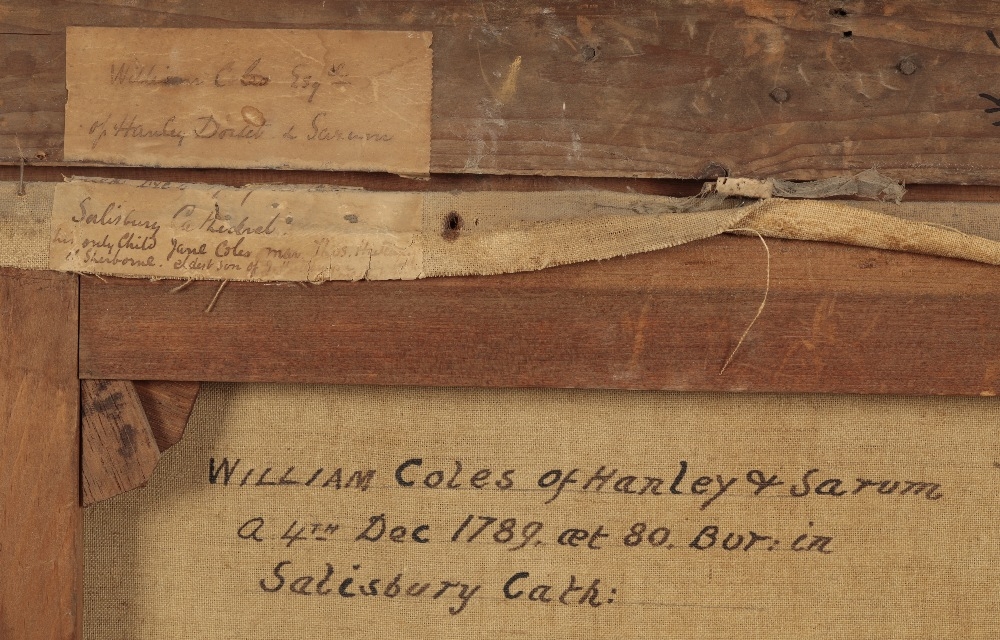 William Coles Esqre
of Hanley Dorset & Sarum
Salisbury Cathedral.
his only Child Jane Coles mar Thos.
of Sherborne. eldest son of
WILLIAM Coles of Hanley & Sarum
A 4TH Dec 1789. æt 80. Bur: in
Salisbury Cath: